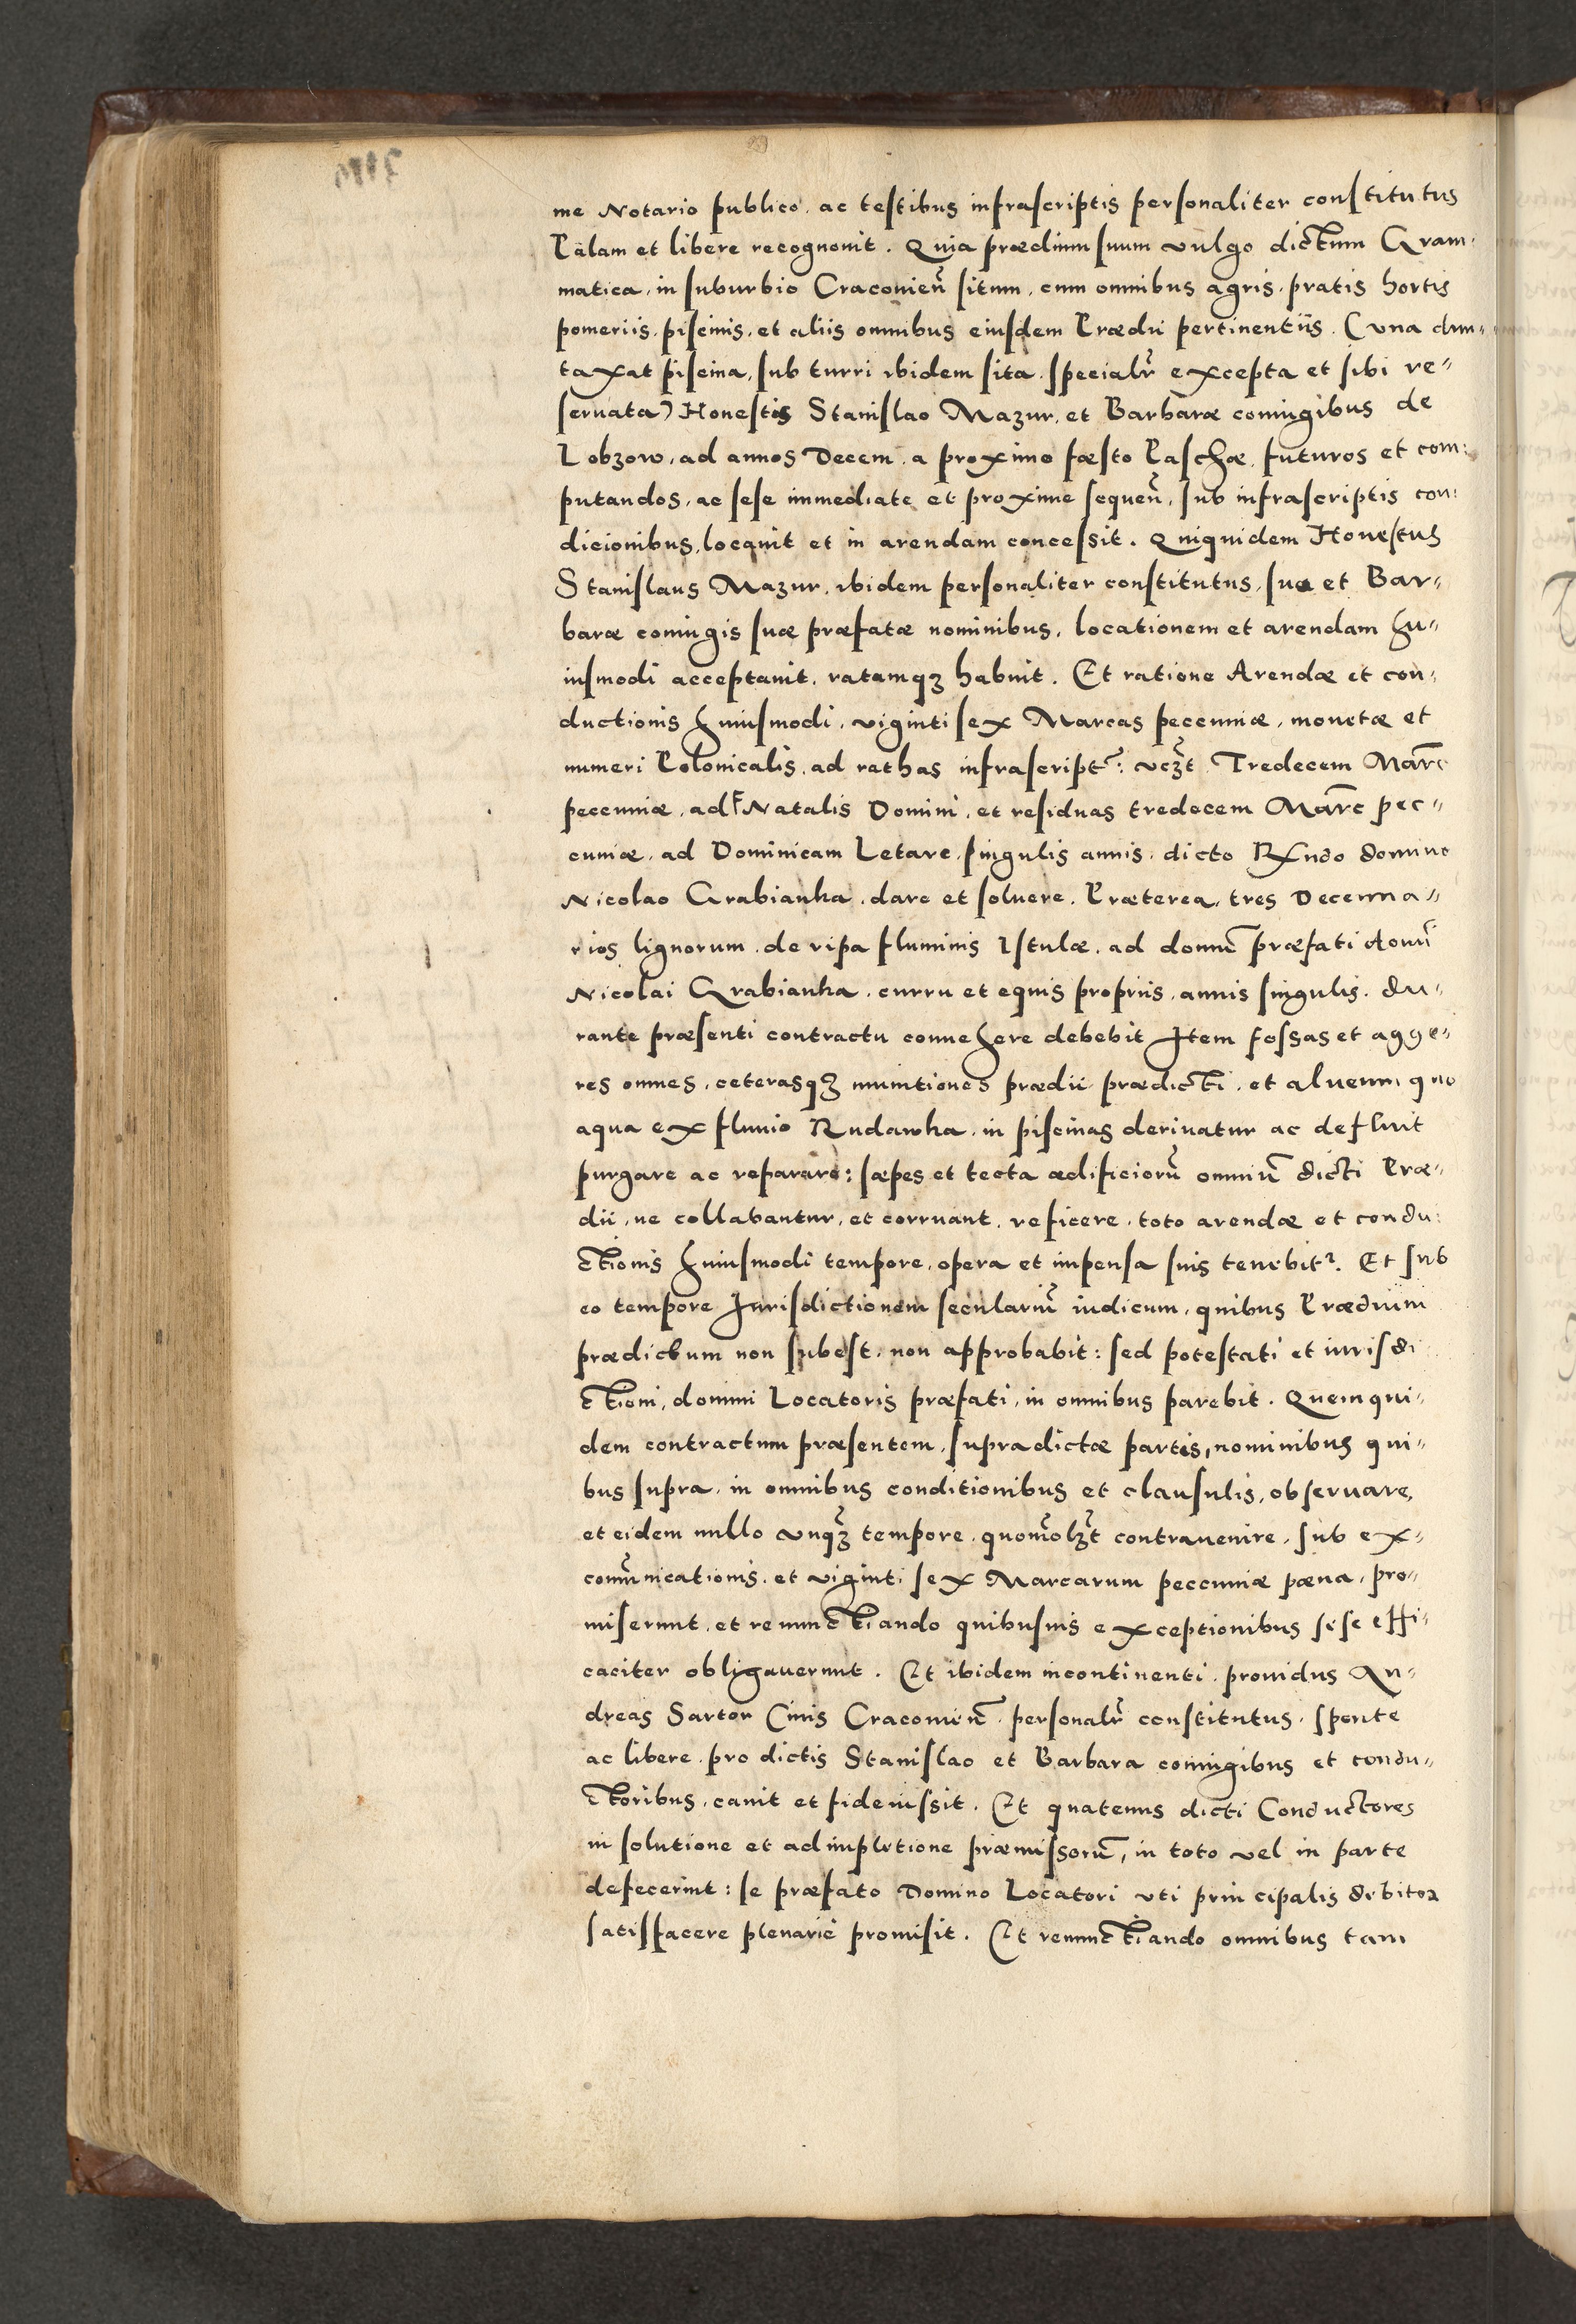 me Notario publico. ac testibus infrascriptis personaliter constitutus
Palam et libere recognouit. Quia prædium suum vulgo dictum Gram-
matica, in suburbio Cracouien̄ situm, cum omnibus agris, pratis hortis
pomeriis, piscinis, et aliis omnibus eiusdem Prædii pertinentiis. (vna dun-
taxat piscina, sub turri ibidem sita, specialr̄ excepta et sibi re-
seruata) Honestis Stanislao Mazur, et Barbaræ coniugibus de
Lobzow, ad annos Decem, a proximo fæsto Paschæ, futuros et com:
putandos, ac sese immediate et proxime sequen̄, sub infrascriptis con:
dicionibus, locauit et in arendam concessit. Quiquidem Honestus
Stanislaus Mazur, ibidem personaliter constitutus, suo et Bar-
baræ coniugis suæ præfatæ nominibus, locationem et arendam hu-
iusmodi acceptauit, ratamqꝫ habuit. Et ratione Arendæ et con-
ductionis huiusmodi, viginti sex Marcas pecuniæ, monetæ et
numeri Polonicalis, ad rathas infrascript̄: vcꝫt Tredecem Marc̄
pecuniæ, ad F Natalis Domini, et residuas tredecem Marc̄ pec-
cuniæ, ad Dominicam Letare, singulis annis, dicto Rx̄ndo domino
Nicolao Grabianka, dare et soluere. Præterea, tres Decenna-
rios lignorum, de ripa fluminis Istulæ, ad domū præfati domī
Nicolai Grabianka, curru et equis propriis, annis singulis, du-
rante præsenti contractu conuehere debebit Item fossas et agge-
res omnes, ceterasqꝫ munitiones prædii prædicti, et alueum quo
aqua ex fluuio Rudawka, in piscinas deriuatur ac defluit
purgare ac reparare: sæpes et tecta ædificiorū omniū dicti Præ-
dii, ne collabantur, et corruant, reficere, toto arendæ et condu:
ctionis huiusmodi tempore, opera et impensa suis tenebitr. Et sub
eo tempore Jurisdictionem seculariū iudicum, quibus Prædium
prædictum non subest, non approbabit: sed potestati et iurisdi
ctioni, domini Locatoris præfati, in omnibus parebit. Quem qui-
dem contractum præsentem, supradictæ partes, nominibus qui-
bus supra, in omnibus conditionibus et clausulis, obseruare,
et eidem nullo vnqꝫ tempore, quomōlꝫt contrauenire, sub ex-
com̄unicationis, et viginti sex Marcarum peccuniæ pæna, pro-
miserunt, et renunctiando quibusuis exceptionibus sese effi-
caciter obligauerunt. Et ibidem incontinenti, prouidus An-
dreas Sartor Ciuis Cracouien̄, personalr̄ constitutus, sponte
ac libere, pro dictis Stanislao et Barbara coniugibus et condu-
ctoribus, cauit et fideiussit. Et quatenus dicti Conductores
in solutione et adimpletione præmissorū, in toto vel in parte
defecerint: se præfato Domino Locatori vti principalis debitor
satisfacere plenarie promisit. Et renunctiando omnibus tam